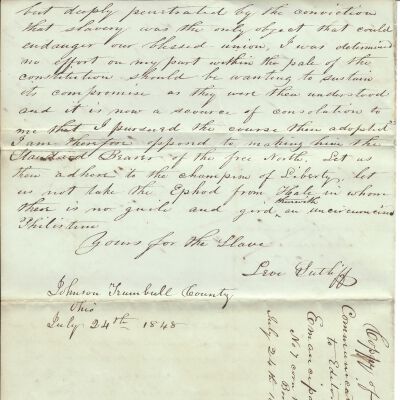 but deeply penetrated by the conviction
that slavery was the only object that could
endanger our blessed union, I was determined
no effort on my part within the pale of the
constitution should be wanting to sustain
its compromise as they were then understood
and it is now a scource of consolation to
me that I pursued the course then adopted"
I am therefore opposed to making him the
Standard Bearer of the free North. Let us
then adhere to the champion of Liberty, let
us not take the Ephod from Hale in whom
there is no guile and gird therewith an uncircumcised
Philistine
Yours for the Slave
Levi Sutliff
Johnson Trumbull County
Ohio
July 24th 1848
Coppy of
Communicat
to Editor
Emancipa
No 7 corn
July 24th 1